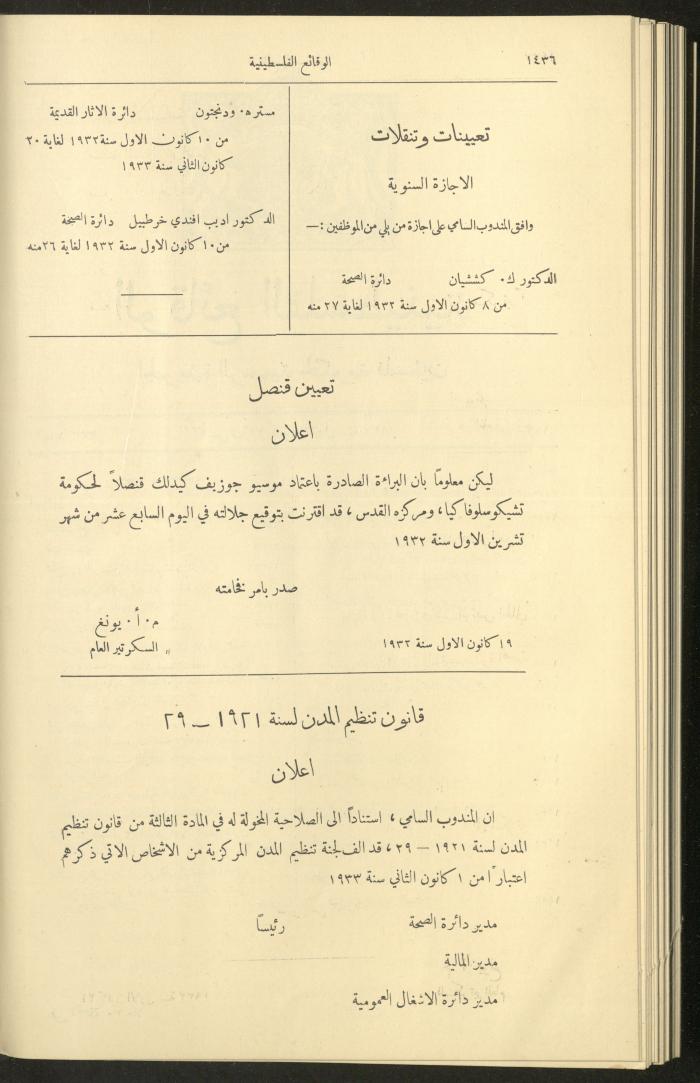 ١٤٣٦
الوقائع الفلسطينية
تعيينات وتنقلات
الاجازة السنوية
وافق المندوب السامي على اجازة من يلي من الموظفين :—
الدكتور ك٠ كششيان دائرة الصحة
من ٨ كانون الاول سنة ١٩٣٢ لغاية ٢٧ منه
مستر ه٠ ودنجتون دائرة الاثار القديمة
من ١٠ كانون الاول سنة ١٩٣٢ لغاية ٢٠
كانون الثاني سنة ١٩٣٣
الدكتور اديب افندي خرطبيل دائرة الصحة
من ١٠ كانون الاول سنة ١٩٣٢ لغاية ٢٦ منه
تعيين قنصل
اعلان
ليكن معلومًا بان البراءة الصادرة باعتماد موسيو جوزيف كيدلك قنصلاً لحكومة
تشيكوسلوفاكيا، ومركزه القدس، قد اقترنت بتوقيع جلالته في اليوم السابع عشر من شهر
تشرين الاول سنة ١٩٣٢
صدر بامر فخامته
م٠ أ٠ يونغ
١٩ كانون الاول سنة ١٩٣٢
السكرتير العام
قانون تنظيم المدن لسنة ١٩٢١ — ٢٩
اعلان
ان المندوب السامي، استنادًا الى الصلاحية المخولة له في المادة الثالثة من قانون تنظيم
المدن لسنة ١٩٢١ — ٢٩، قد الف لجنة تنظيم المدن المركزية من الاشخاص الاتي ذكرهم
اعتبارًا من ١ كانون الثاني سنة ١٩٣٣
مدير دائرة الصحة رئيسًا
مدير المالية
مدير دائرة الاشغال العمومية